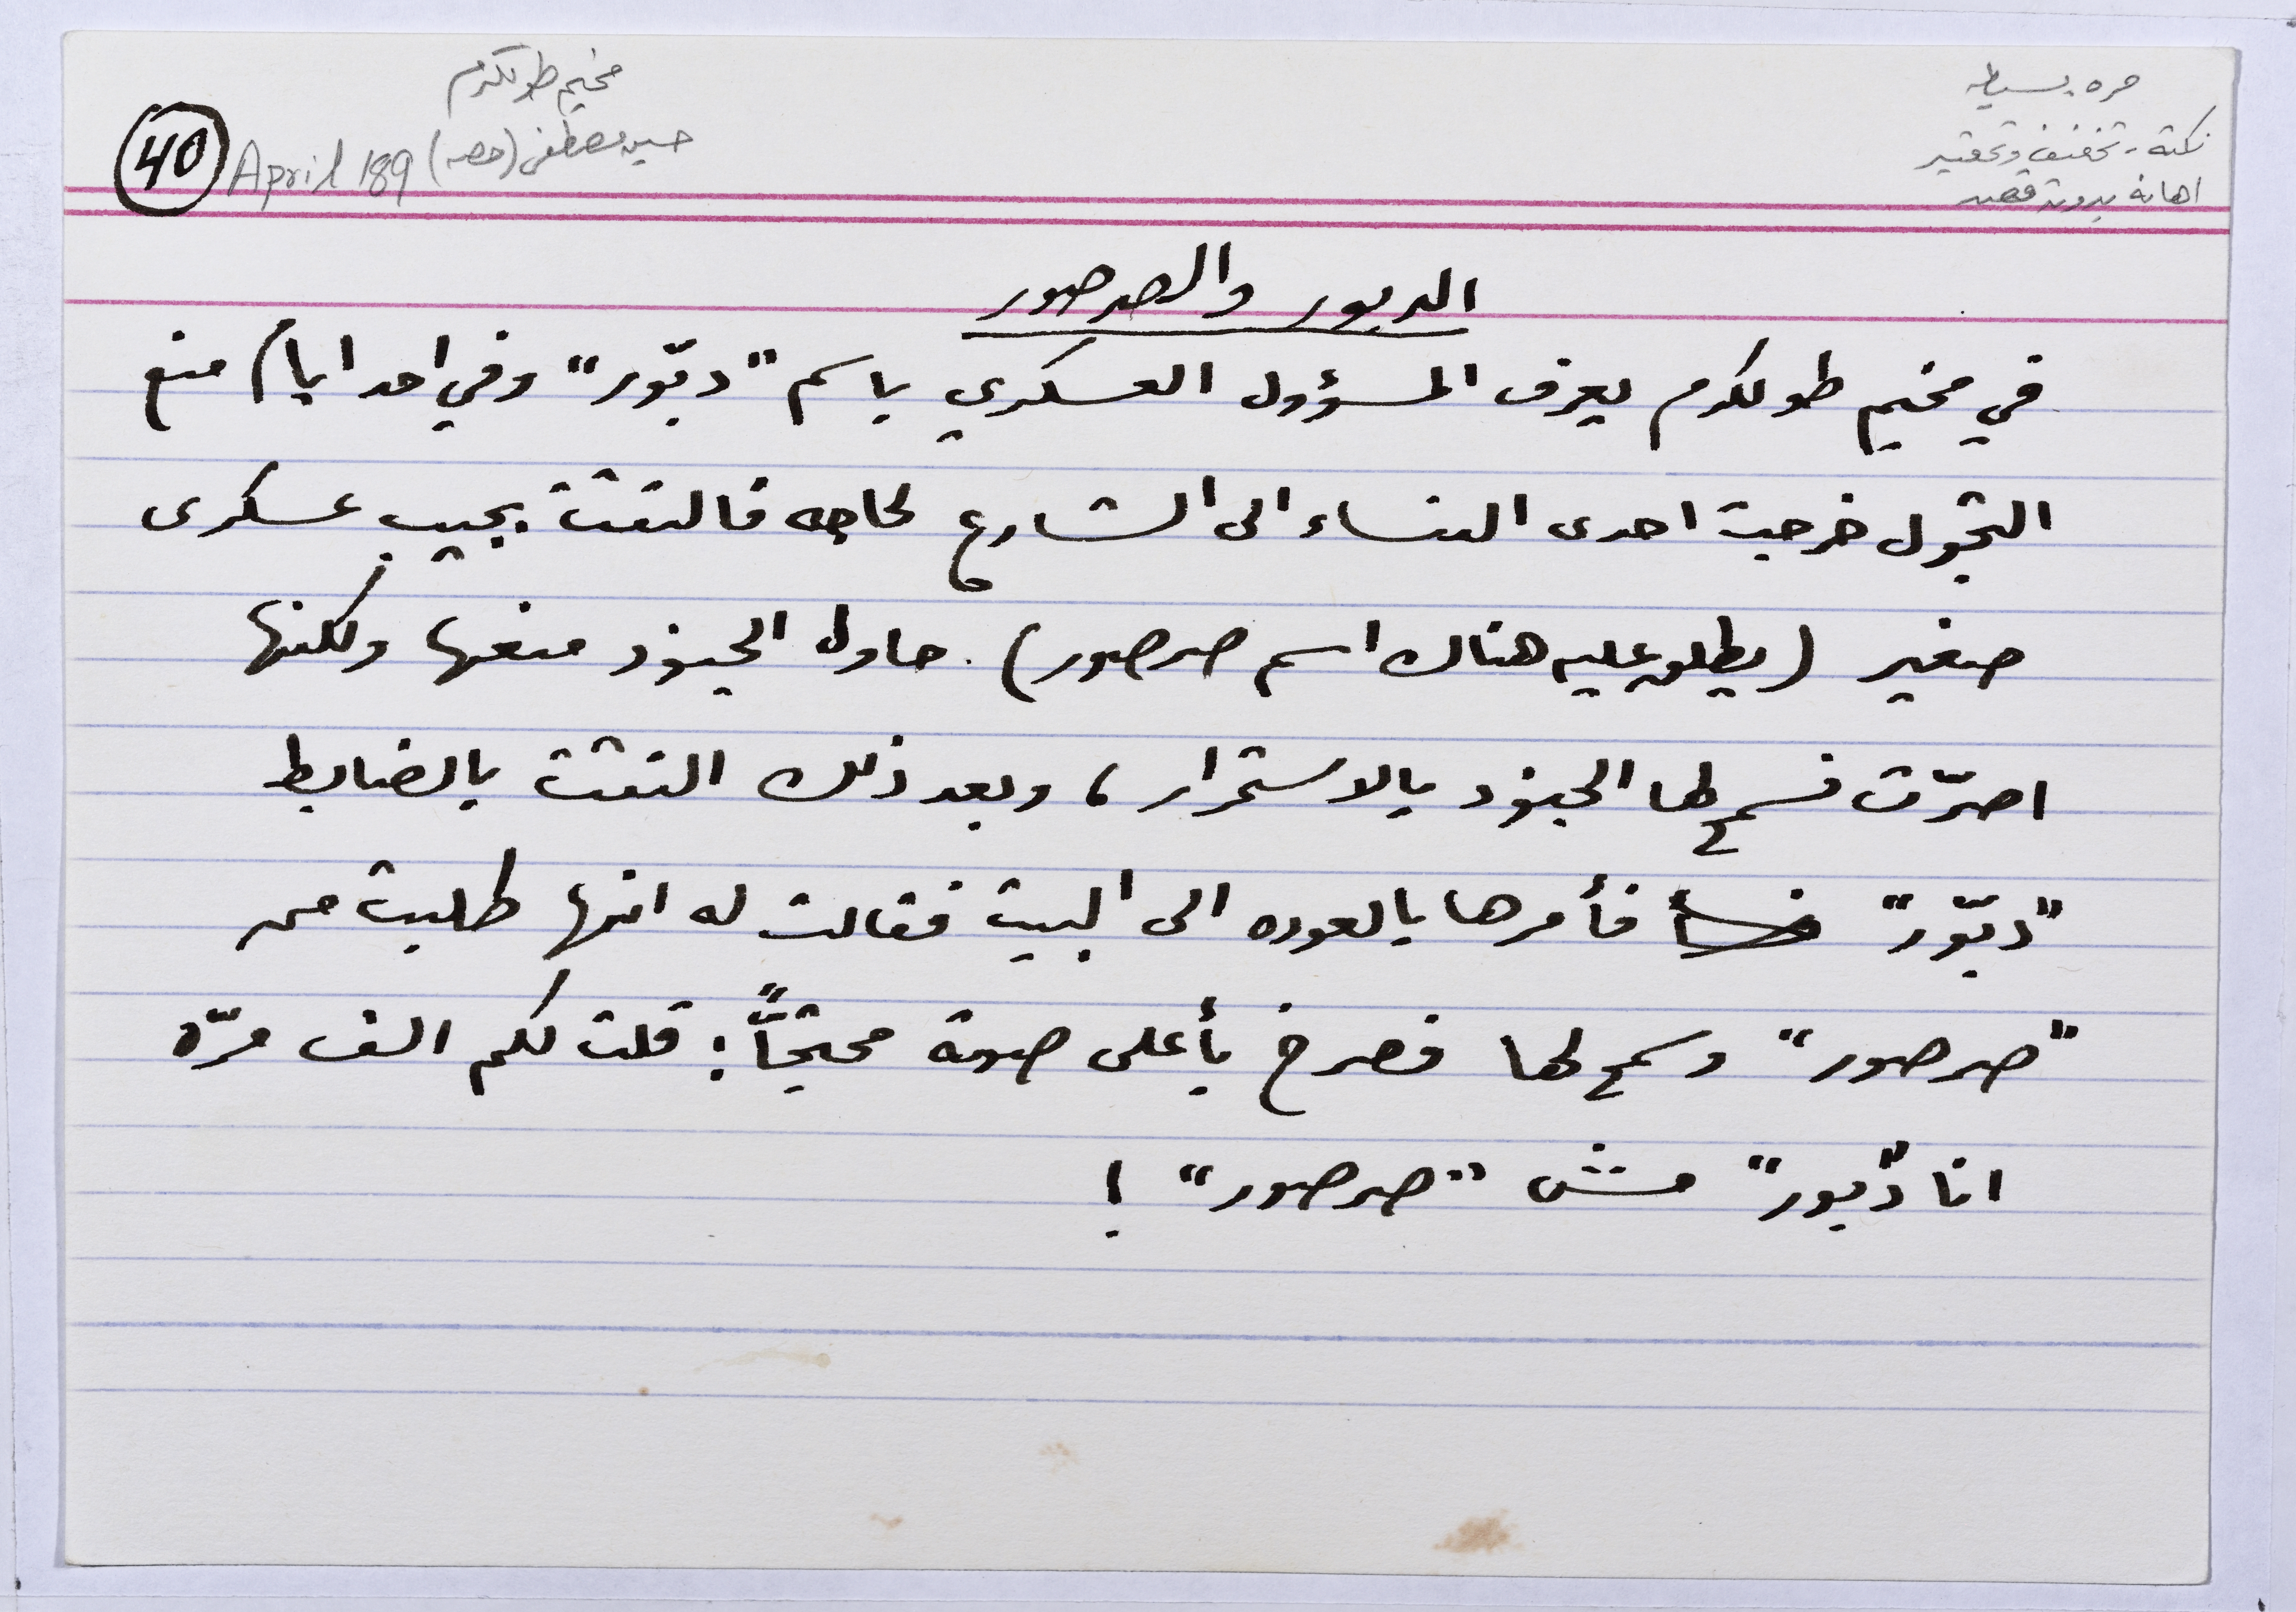 مخيم طولكرم
حسين مصطفى (حصه) April 189
40
مره بسيطه
نكتة - تخفيف وتحقير
اهانه بدون قصد
الدبور والصرصور
في مخيم طولكرم يعرف المسؤول العسكري باسم "دبّور" وفي احد ايام منع
التجول خرجت احدى النساء الى الشارع لحاجه فالتقت بجيب عسكري
صغير (يطلق عليه هناك اسم صرصور). حاول الجنود منعها ولكنها
اصرّت فسمح لها الجنود بالاستمرار، وبعد ذلك التقت بالضابط
"دبّور" فأمرها بالعوده الى البيت فقالت له انها طلبت من
"صرصور" وسمح لها فصرخ بأعلى صوته محتجّاً: قلت لكم الف مرّه
انا "دبّور" مش "صرصور"!